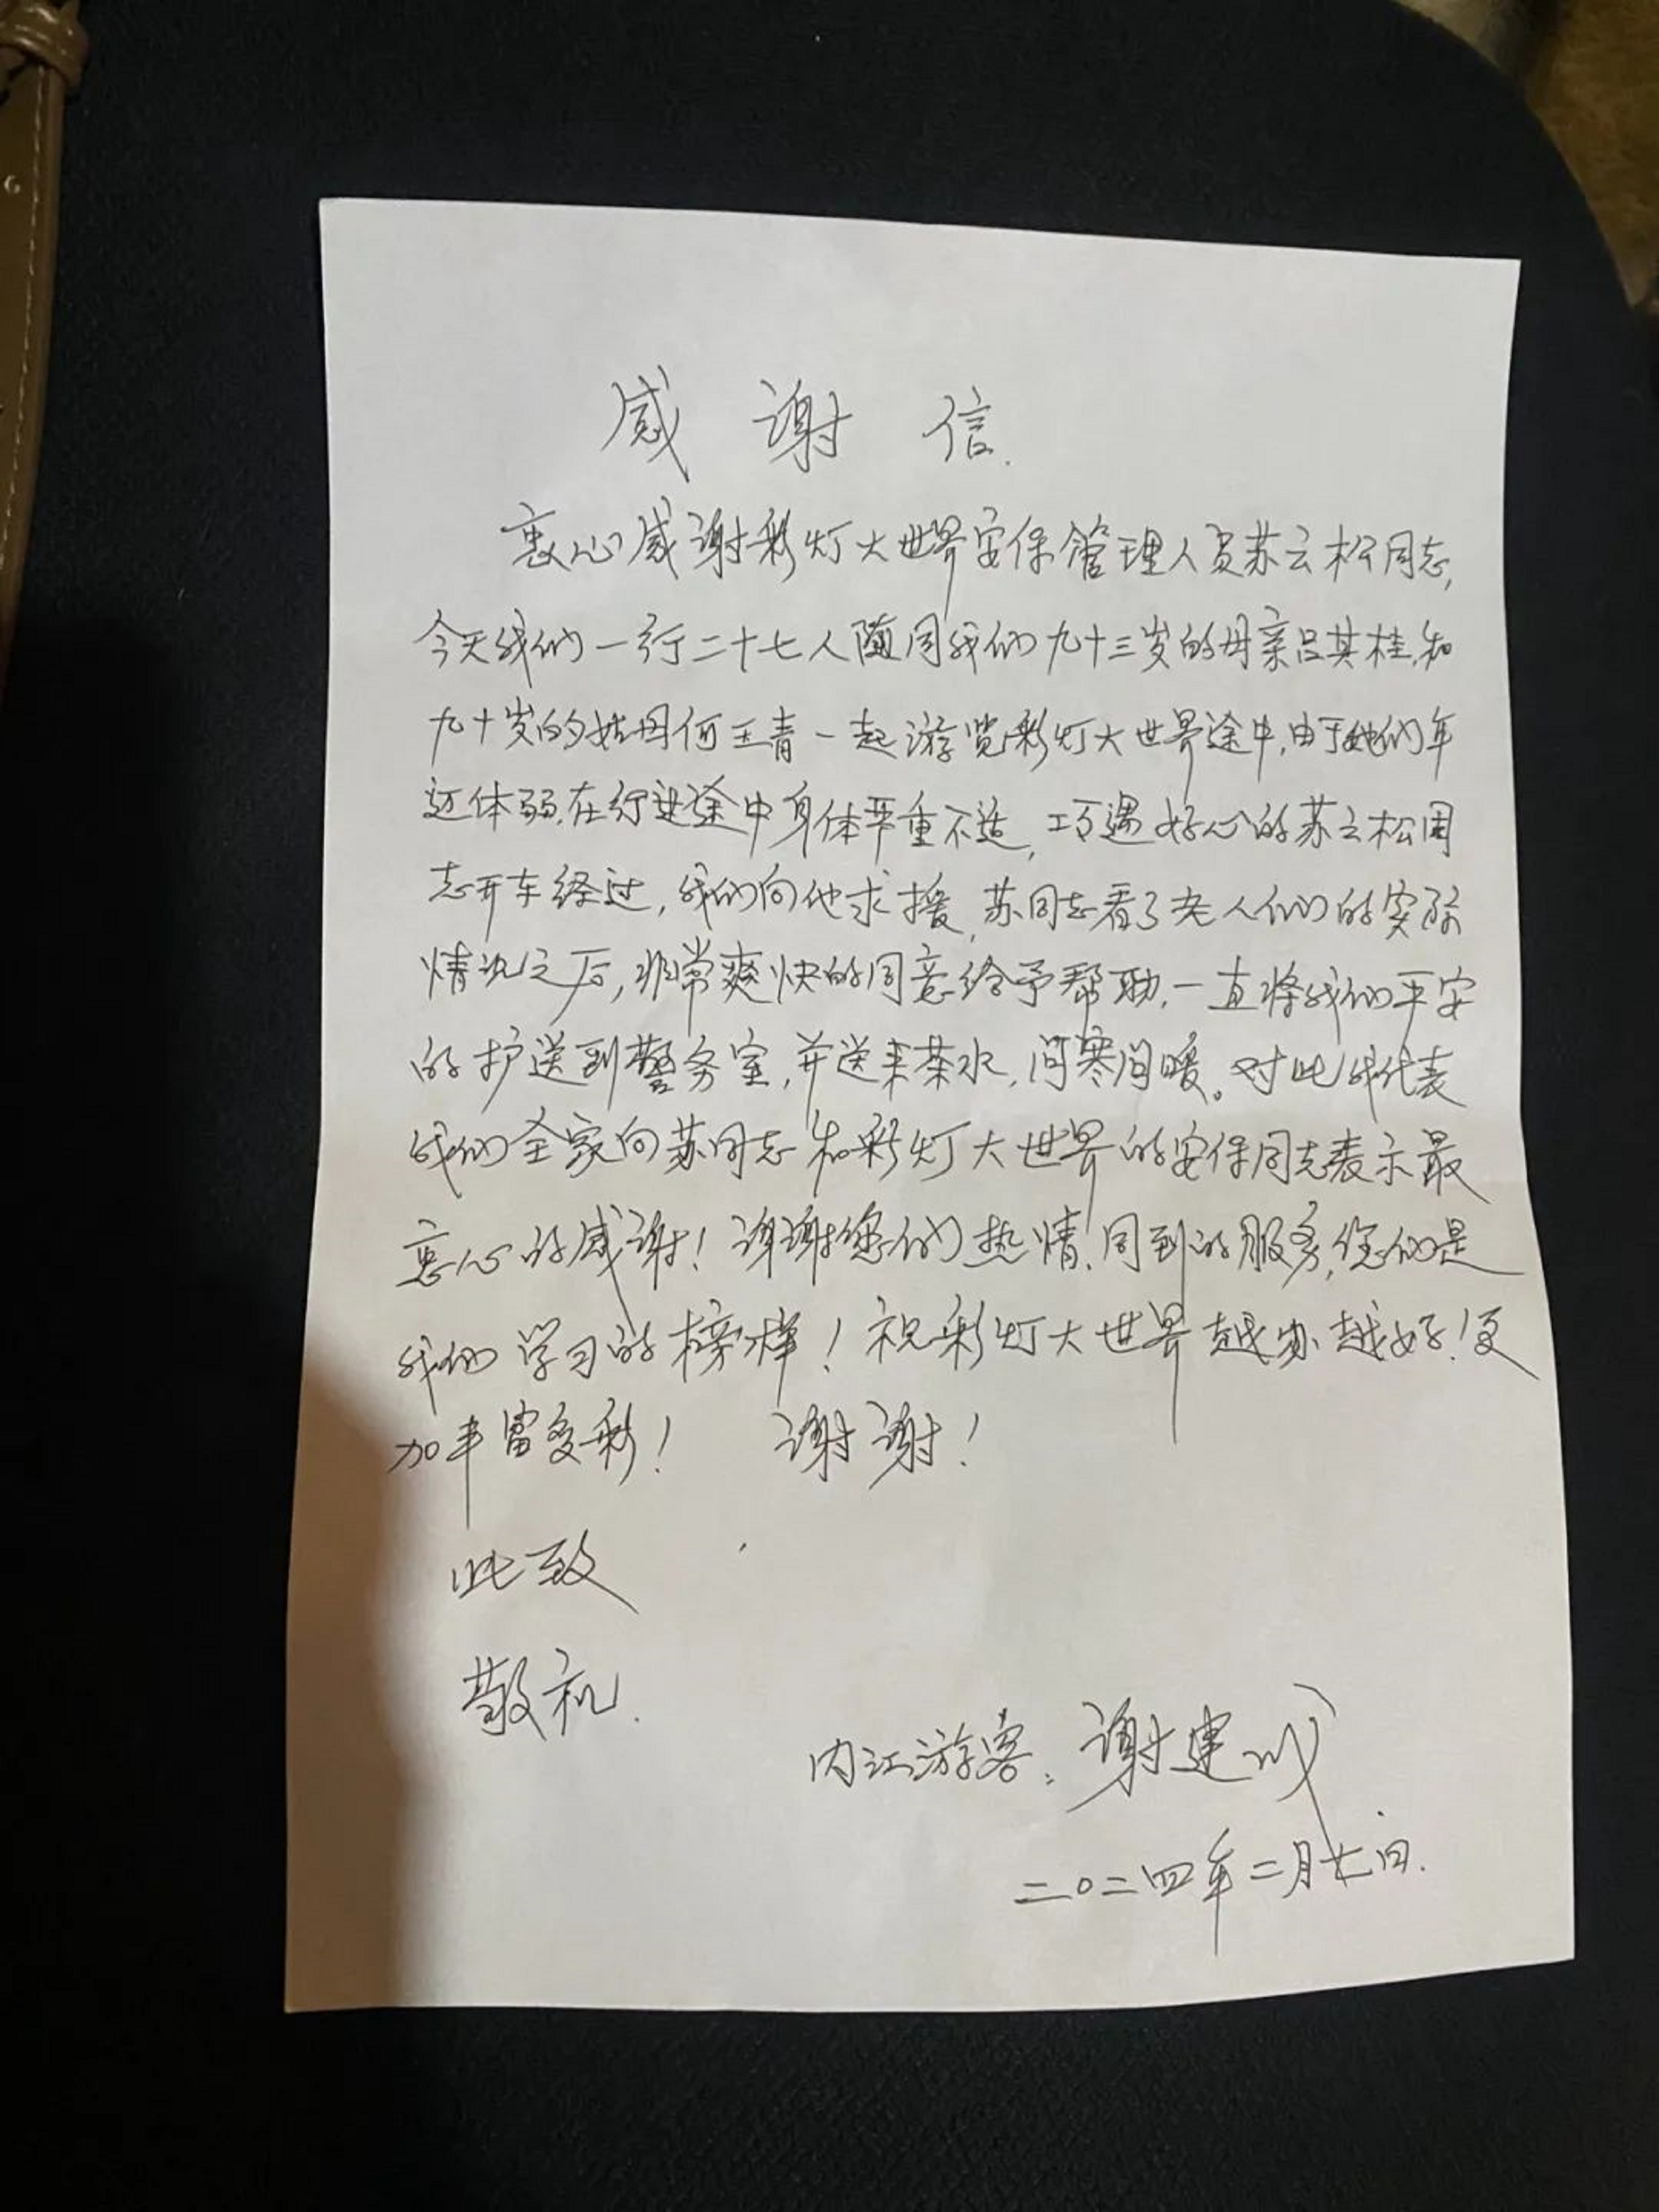 感谢信.
衷心感谢彩灯大世界安保管理人员苏云松同志,
今天我们一行二十七人随同我们九十三岁的母亲吕其桂,和
九十岁的姑母何玉青一起游览彩灯大世界途中,由于她们年
迈体弱,在行进途中身体严重不适,巧遇好心的苏云松同
志开车经过,我们向他求援,苏同志看了老人们的实际
情况之后,非常爽快的同意给予帮助,一直将我们平安
的护送到警务室,并送来茶水,问寒问暖。对此我代表
我们全家向苏同志和彩灯大世界的安保同志表示最
衷心的感谢!谢谢您们热情、周到的服务,您们是
我们学习的榜样!祝彩灯大世界越办越好!更
加丰富多彩! 谢谢!
此致
敬礼.
内江游客:谢建
二〇二四年二月 日.